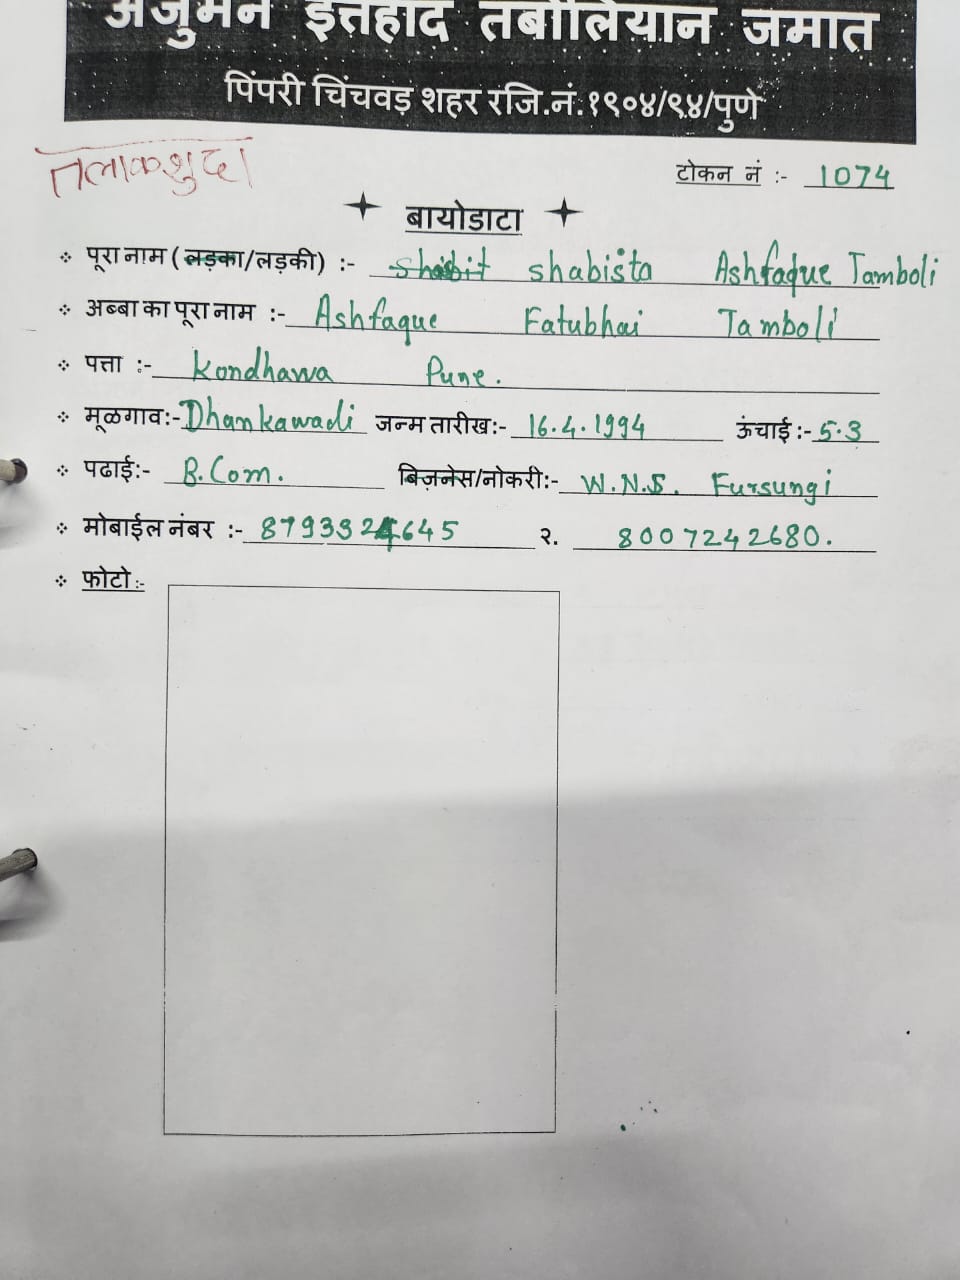 अंजुमन इत्तेहाद तंबोलियान जमात
पिंपरी चिंचवड़ शहर रजि.नं.१९०४/९४/पुणे
तलाकशुदा
टोकन नं :- 1074
बायोडाटा
पूरा नाम (लड़का/लड़की) :- shabista Ashfaque Tamboli
अब्बा का पूरा नाम :- Ashfaque Fatubhai Tamboli
पत्ता :- Kondhawa Pune.
मूळगाव:- Dhankawadi जन्म तारीख:- 16.4.1994 ऊंचाई :- 5.3
पढाई:- B.Com. बिज़नेस/नोकरी:- W.N.S. Fursungi
मोबाईल नंबर :- 8793324645 २. 8007242680.
फोटो:-